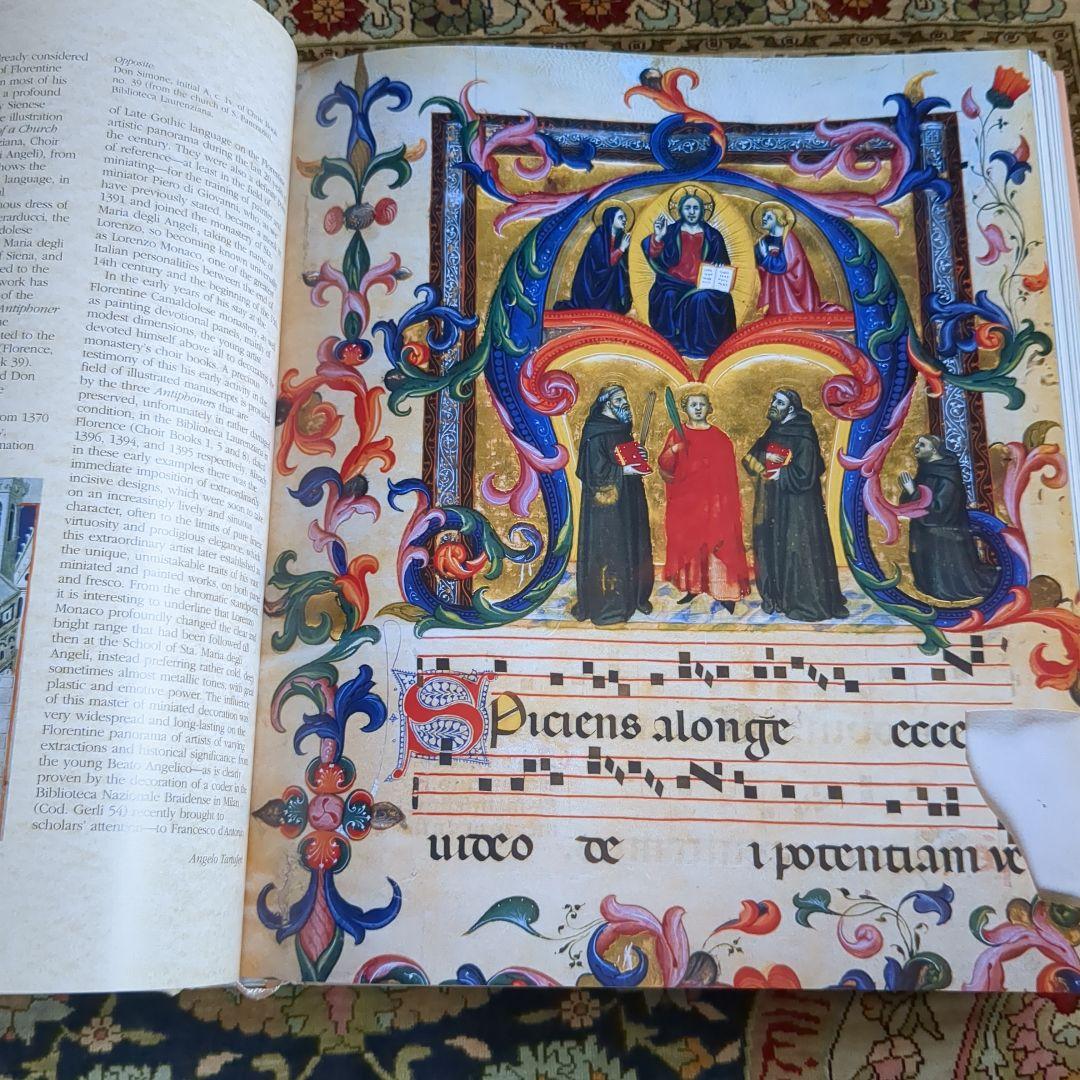 lready considered
of Florentine
n most of his
a profound
y Sienese
e illustration
of a Church
ziana, Choir
i Angeli), from
hows the
language, in
l
nous dress of
erarducci, the
dolese
Maria degli
of Siena, and
ed to the
work has
of the
Antiphoner
ne
ted to the
(Florence,
k 39).
d Don
e
om 1370
y,
nation
Opposite
Don Simone, initial A, c. 1v, of Choir Book
no. 39 (from the church of S. Pancrazio),
Biblioteca Laurenziana.
of Late Gothic language on the Florentine
artistic panorama during the last decades of
the century. They were also a definite point
of reference—at least in the field of
miniating—for the training of the young
miniator Piero di Giovanni, who, as we
have previously stated, became a monk in
1391 and joined the monastery of Sta.
Maria degli Angeli, taking the name of
Lorenzo, so becoming known universally
as Lorenzo Monaco, one of the greatest
Italian personalities between the end of the
14th century and the beginning of the 15th.
In the early years of his stay at the
Florentine Camaldolese monastery, as well
as painting devotional panels, mainly of
modest dimensions, the young artist
devoted himself above all to decorating the
monastery's choir books. A precious
testimony of this his early activity in the
field of illustrated manuscripts is provided
by the three Antiphoners that are
preserved, unfortunately in rather damaged
condition, in the Biblioteca Laurenziana in
Florence (Choir Books 1, 5 and 8), dated
1396, 1394, and 1395 respectively. Already
in these early examples there was the
immediate imposition of extraordinarily
incisive designs, which were soon to take
on an increasingly lively and sinuous
character, often to the limits of pure linear
virtuosity and prodigious elegance, which
this extraordinary artist later established as
the unique, unmistakable traits of his many
miniated and painted works, on both panel
and fresco. From the chromatic standpoint,
it is interesting to underline that Lorenzo
Monaco profoundly changed the clear and
bright range that had been followed till
then at the School of Sta. Maria degli
Angeli, instead preferring rather cold, deep,
sometimes almost metallic tones, with great
plastic and emotive power. The influence
of this master of miniated decoration was
very widespread and long-lasting on the
Florentine panorama of artists of varying
extractions and historical significance, from
the young Beato Angelico—as is clearly
proven by the decoration of a codex in the
Biblioteca Nazionale Braidense in Milan
(Cod. Gerli 54) recently brought to
scholars' attention—to Francesco d'Antonio
Angelo Tartuferi
SPiciens alonge ecce
uideo de i potentiam ue